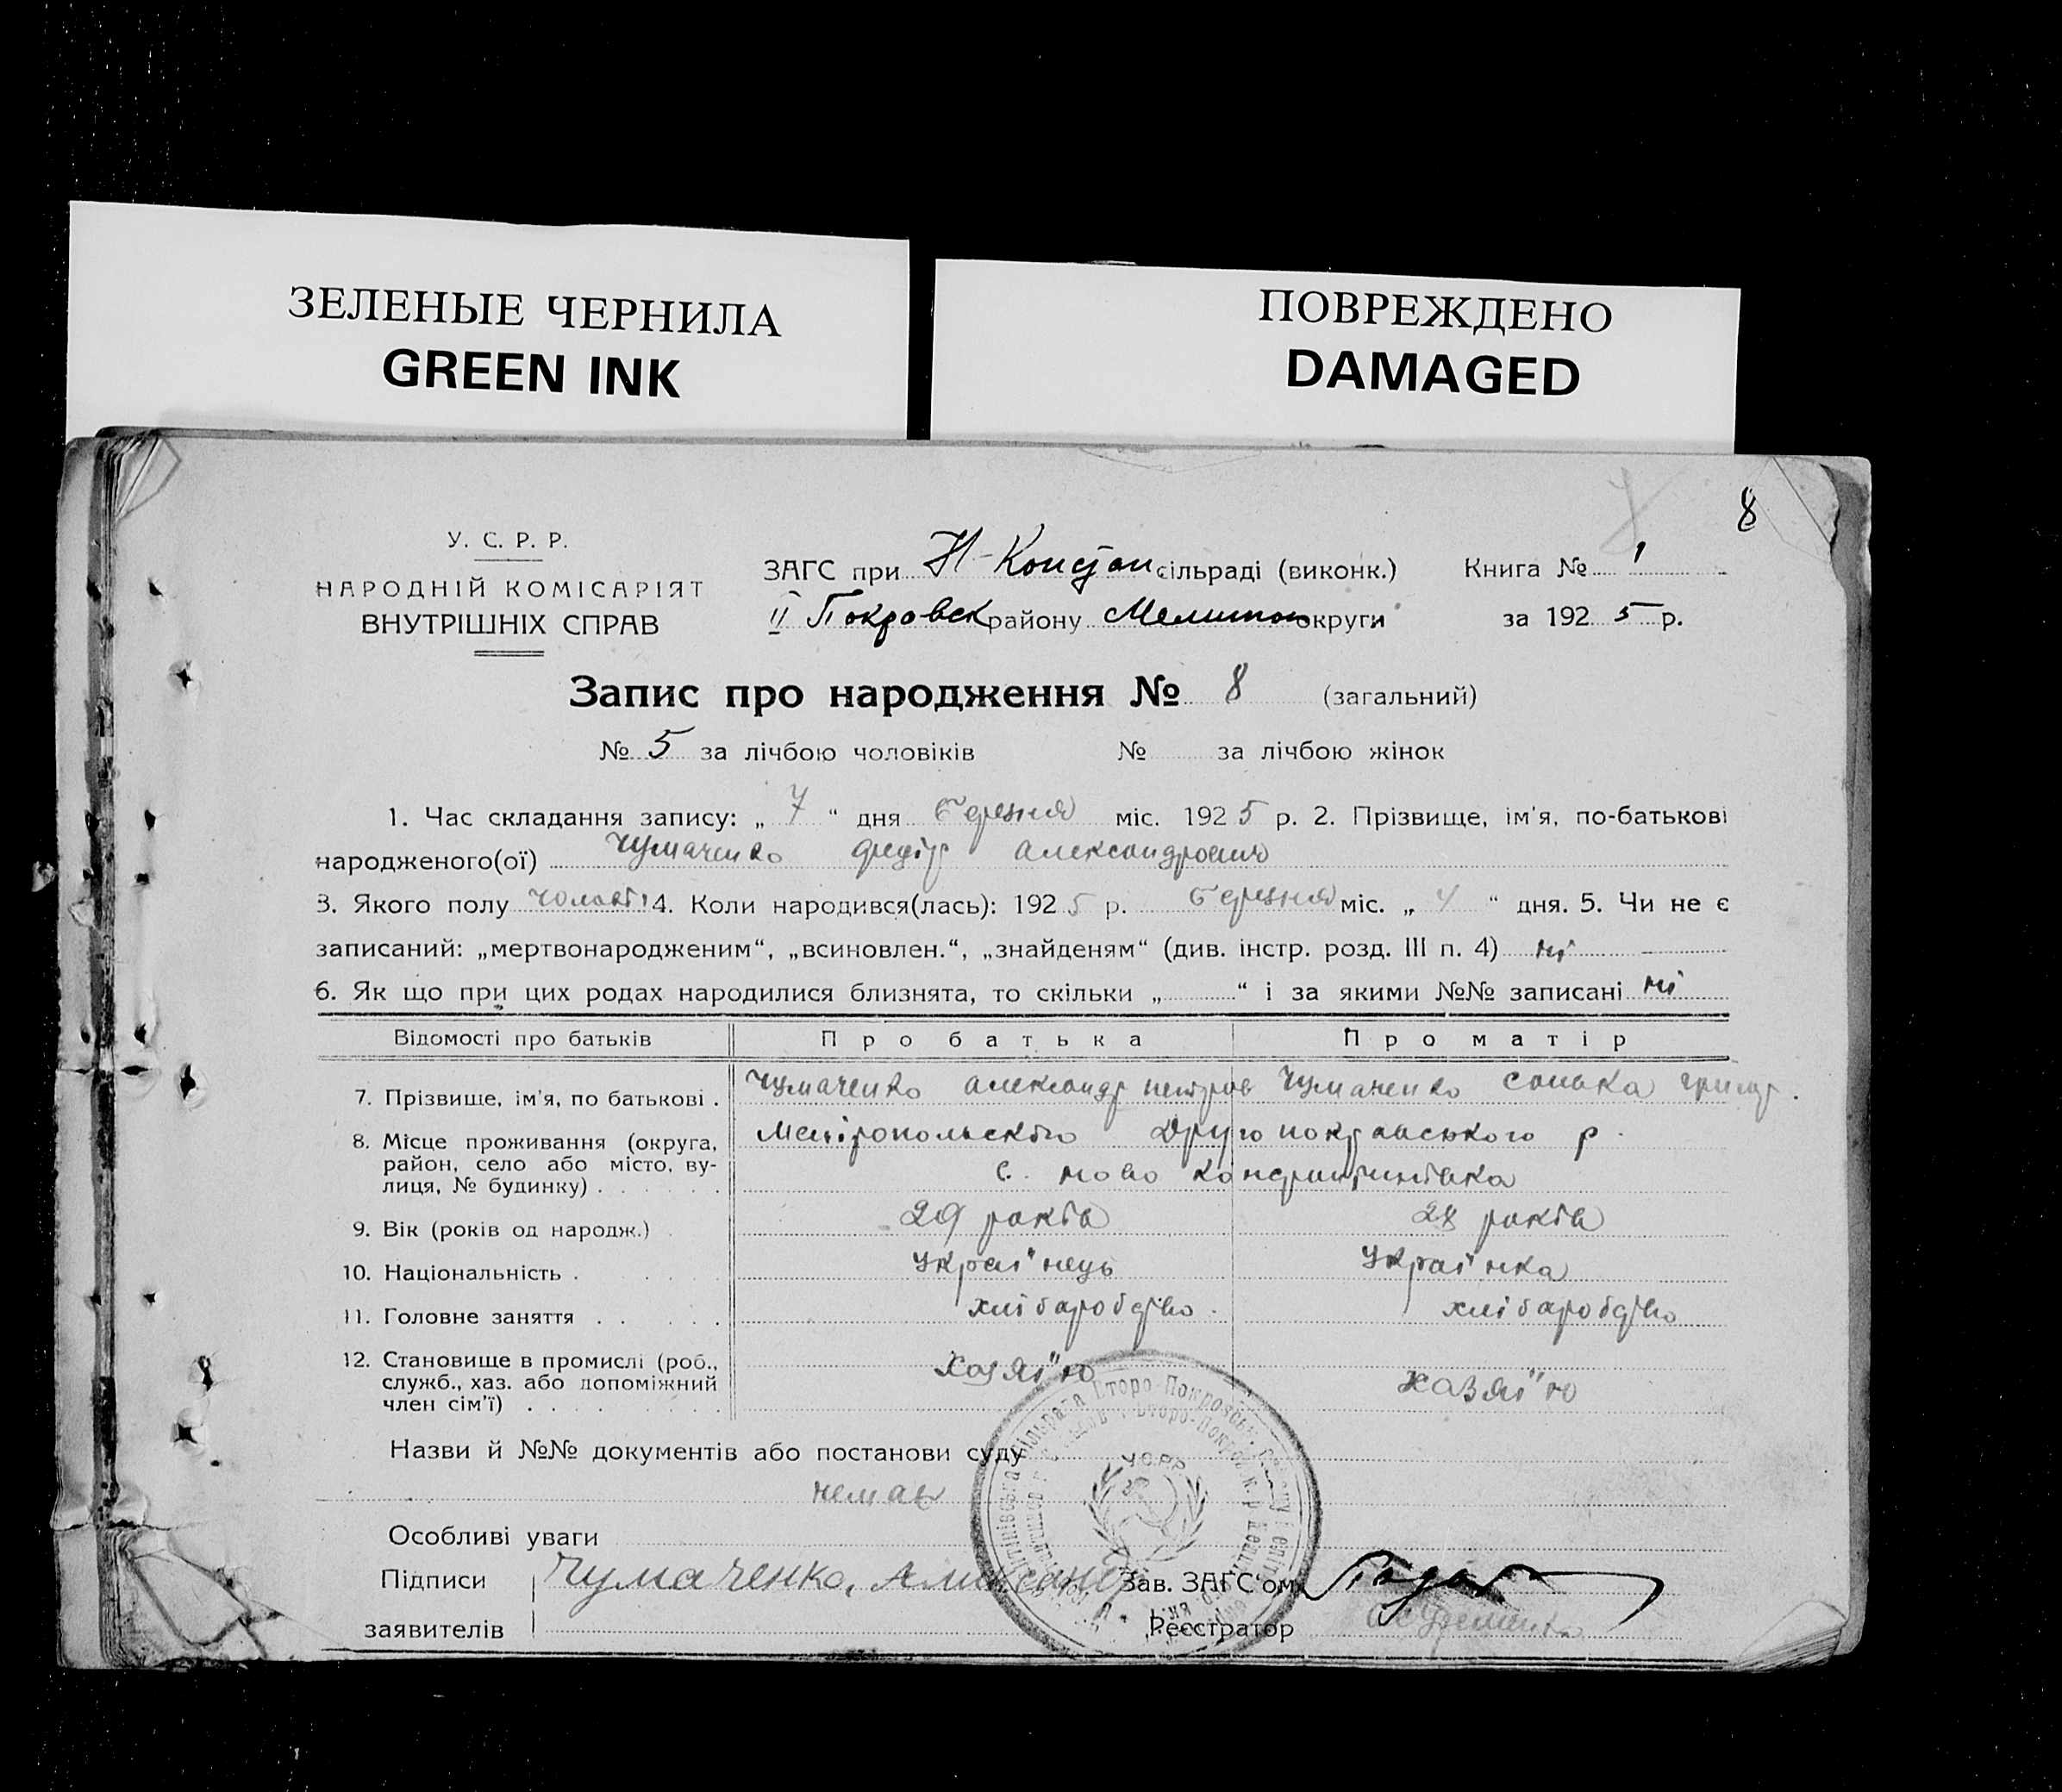 ЗЕЛЕНЫЕ ЧЕРНИЛА
GREEN INK
ПОВРЕЖДЕНО
DAMAGED
8
У. С. Р. Р.
НАРОДНІЙ КОМІСАРІЯТ
ВНУТРІШНІХ СПРАВ
ЗАГС при Н-Констан сільраді (виконк.) Книга № 1
II Покровск району Мелитоп округи за 1925 р.
Запис про народження № 8 (загальний)
№ 5 за лічбою чоловіків № за лічбою жінок
1. Час складання запису: „ 7 “ дня березня міс. 1925 р. 2. Прізвище, ім'я, по-батькові
народженого(ої) Чумаченко Александрович
3. Якого полу 4. Коли народився(лась): 1925 р. березня міс. „ 4 “ дня. 5. Чи не є
записаний: „мертвонародженим“, „всиновлен.“, „знайденям“ (див. інстр. розд. III п. 4) ні
6. Як що при цих родах народилися близнята, то скільки „ “ і за якими №№ записані ні
Відомості про батьків Про батька Про матір
7. Прізвище, ім'я, по батькові . Чумаченко Александр петров Чумаченко григор.
8. Місце проживання (округа, район, село або місто, вулиця, № будинку) . Друго покравського р.
с. ново
9. Вік (років од народж.) 29 років 28 років
10. Національність . Україʼнець Україʼнка
11. Головне заняття . . хліборобство . хліборобство
12. Становище в промислі (роб., служб., хаз. або допоміжний член сім'ї) хазяїню хазяїню
Назви й №№ документів або постанови суду
немає
Особливі уваги
Підписи Чумаченко, Александ Зав. ЗАГС'ом
заявителів Реєстратор
УСРР